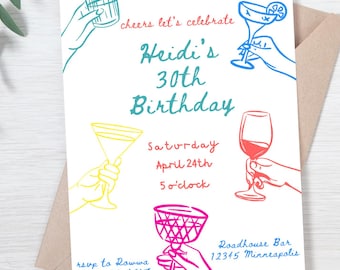 cheers let's celebrate
Heidi's
30th
Birthday
Saturday
April 24th
5 o'clock
Roadhouse Bar
12345 Minneapolis
rsvp to Rowwa